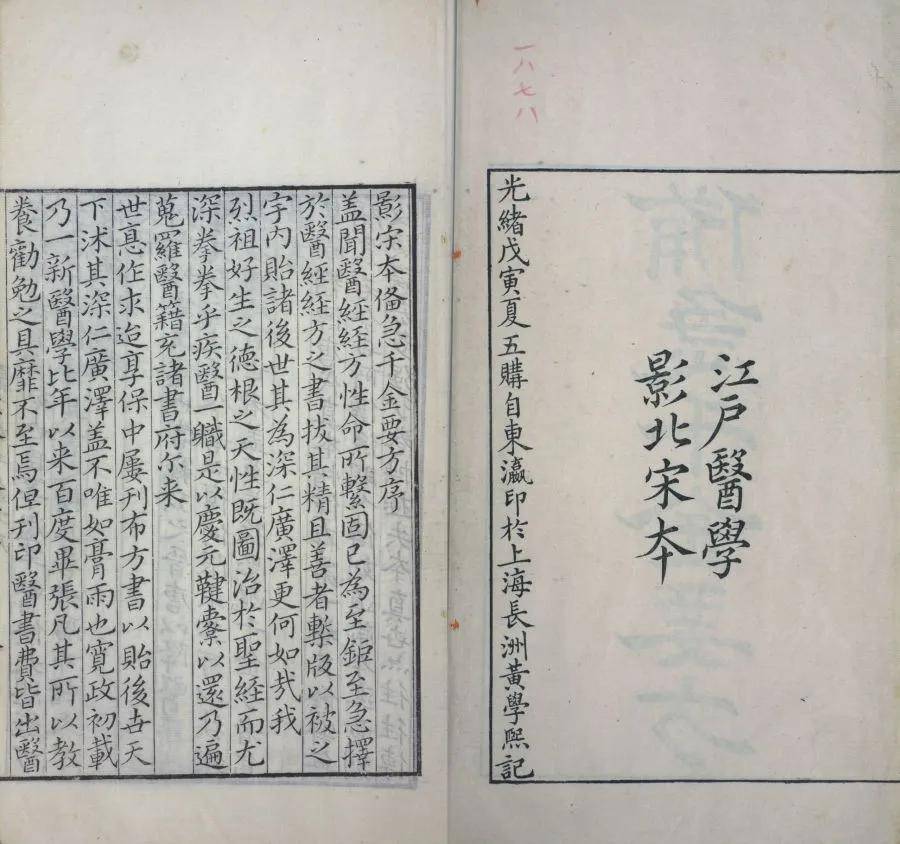 一八七八
江戶醫學
影北宋本
光緒戊寅夏五購自東瀛印於上海長洲黃學熙記
影宋本備急千金要方序
蓋聞醫經經方性命所繫固已為至鉅至急擇
於醫經經方之書拔其精且善者槧版以被之
宇內貽諸後世其為深仁廣澤更何如哉我
烈祖好生之德根之天性既圖治於聖經而尤
深拳拳乎疾醫一職是以慶元鞬櫜以還乃遍
蒐羅醫籍充諸書府尒来
世悳作求迨享保中屢刊布方書以貽後世天
下沭其深仁廣澤蓋不唯如膏雨也寬政初載
乃一新醫學比年以来百度畢張凡其所以教
養勸勉之具靡不至焉但刊印醫書費皆出醫